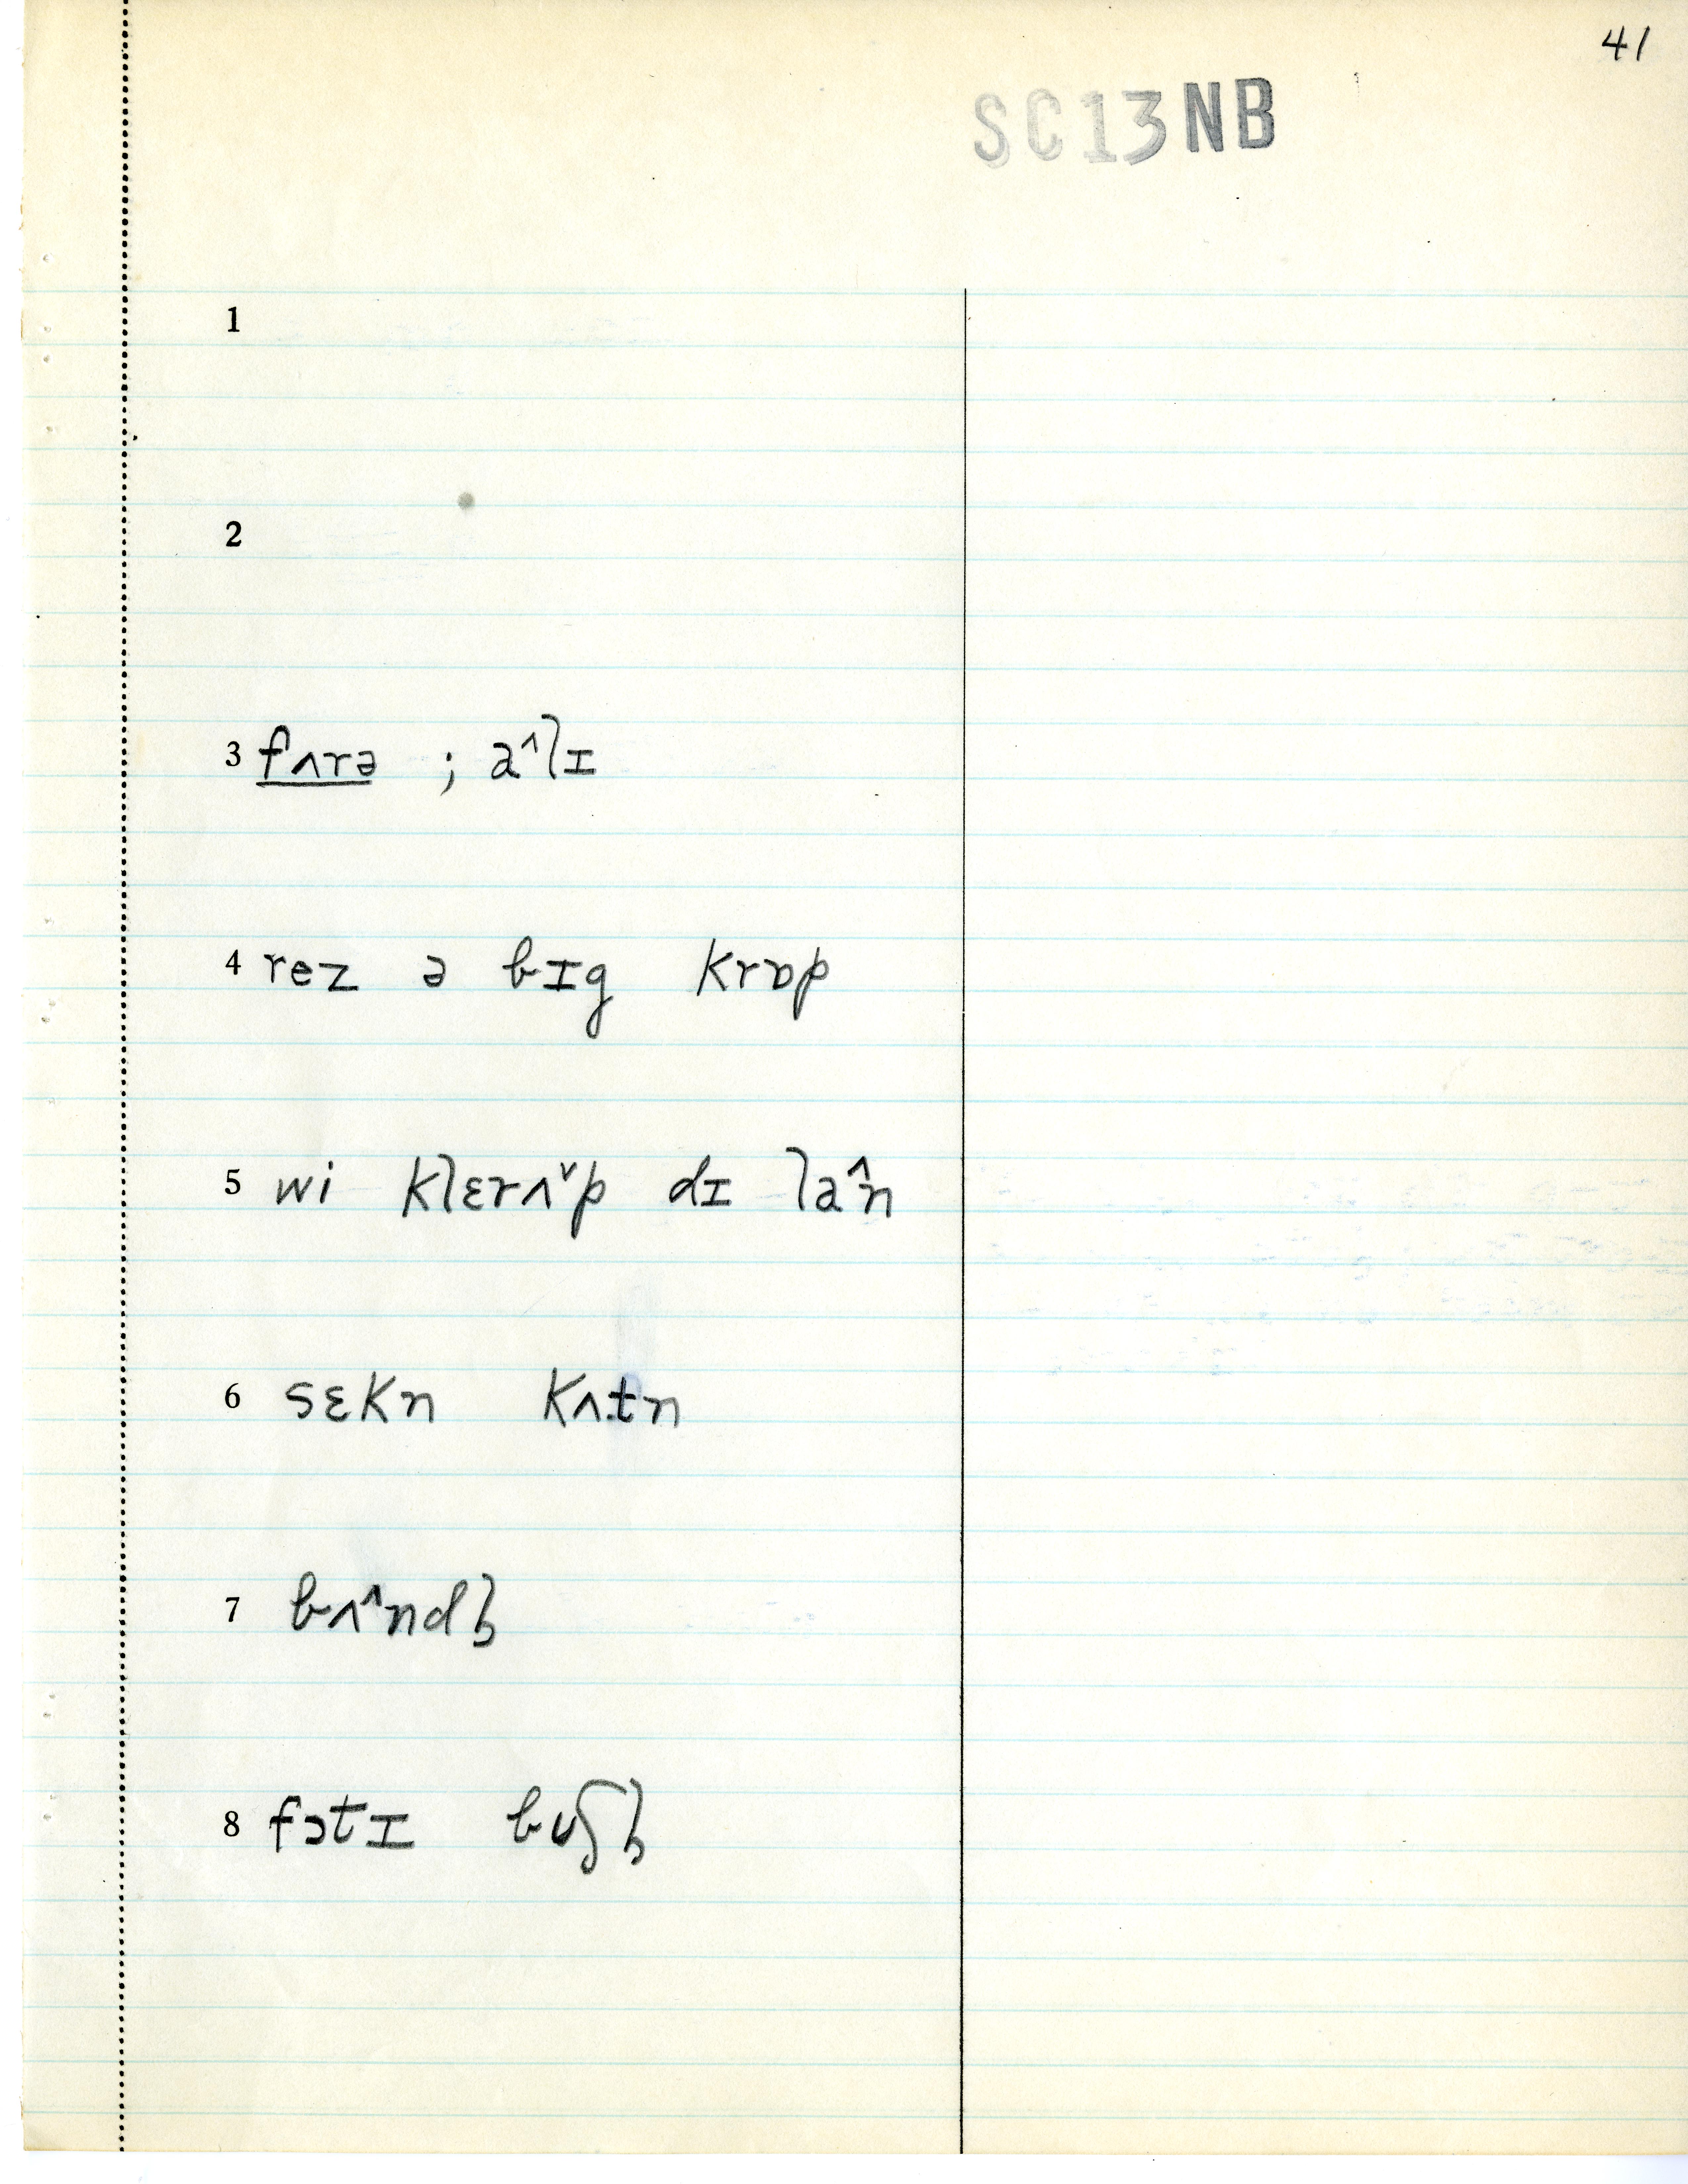 41
SC13NB
1
2
3 fʌrə ; a^lɪ
4 rez ə bɪg krɒp
5 wi klɛrʌˇp dɪ la^n
6 sɛkn kʌtn
7 bʌ^ndḷ
8 fɔtɪ bʊʃḷ